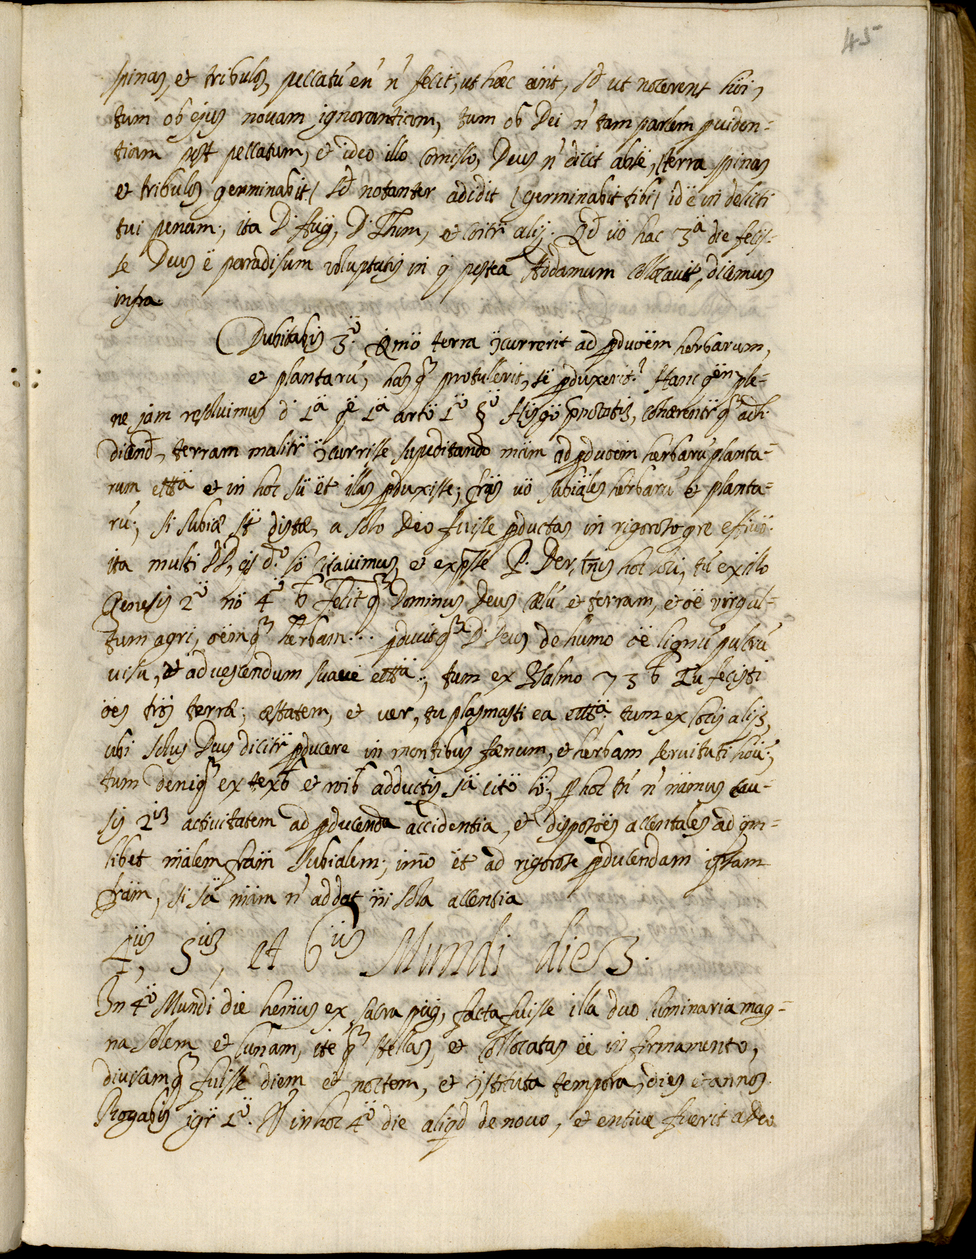 45
spinas, et tribulos, peccatū en' n' fecit, ut hæc eint, sd ut nocerent hōi,
tum ob ejus novam ignorantiam, tum ob Dei n' tam parlem pviden-
tiam post peccatum, et ideo illo comisso, Deus n' dicit abse, (terra spinas
et tribulos germinabit) sd notanter adidit (germinabit tibi) id ē in delicti
tui penam; ita D. Aug, D. Thom, et coitr alij. Qd vo hac 3ª die fecis-
se Deus ē parradisum voluptatis in q postea Adamum collocavit, dicemus
infra
Dubitabis 3º. Qmo terra ɔcurrerit ad pductoem herbarum,
et plantarū, has q3 protulerit, se pduxerit? Hanc qen ple-
ne jam resoluimus d 1ª qe 1ª arto 1º § Hijs go ppositis, cohærenter q3 ad h
dicend, terram malitr ɔcurrisse supeditando mām ad pductoem herbarū planta-
rum ettª et in hoc sū et illas pduxisse; frās vo subiales herbarū et planta-
rū, si subiæ st distæ, a solo Deo fuisse pductas in rigoroso gre effivo:
ita multi PP, qs do lo citavimus, et expsse P. Der, tnus hoc loci, tū ex illo
Genesis 2º no 4º b fecit q3 Dominus Deus cælū et terram, et oē virgul-
tum agri, oem q3 hærbam... pduxit q3 D. Deus de humo oē lignū pulcrū
visu, et ad vescendum suave ettª, tum ex Psalmo 73 b Tu fecisti
oes tros terræ, æstatem, et ver, tu plasmasti ea ettª tum ex locis alijs,
ubi solus Deus dicitr pducere in montibus fænum, et herbam servituti hoū,
tum deniq3 ex textb et roib adductis sū cito lo; p hoc tn n' nāmus cau-
sis 2is activitatem ad pducenda accidentia, et dispositoes accentales ad qm-
libet mālem frām subialem; imō et ad rigorose pducendam ipsam
frām, si sū mām n' addat ni sola accentia
4us, 5us, et 6us Mundi dies.
In 4º Mundi die hemus ex sacra pag, facta fuisse illa duo luminaria mag-
na solem et lunam, ite q3 stellas, et collocatas ee in firmamento,
divisam q3 fuisse diem et noctem, et ɔstituta tempora, dies et annos.
Rogabis igr 1º. An in hoc 4º die aliqd de novo, et entive fuerit a Deo